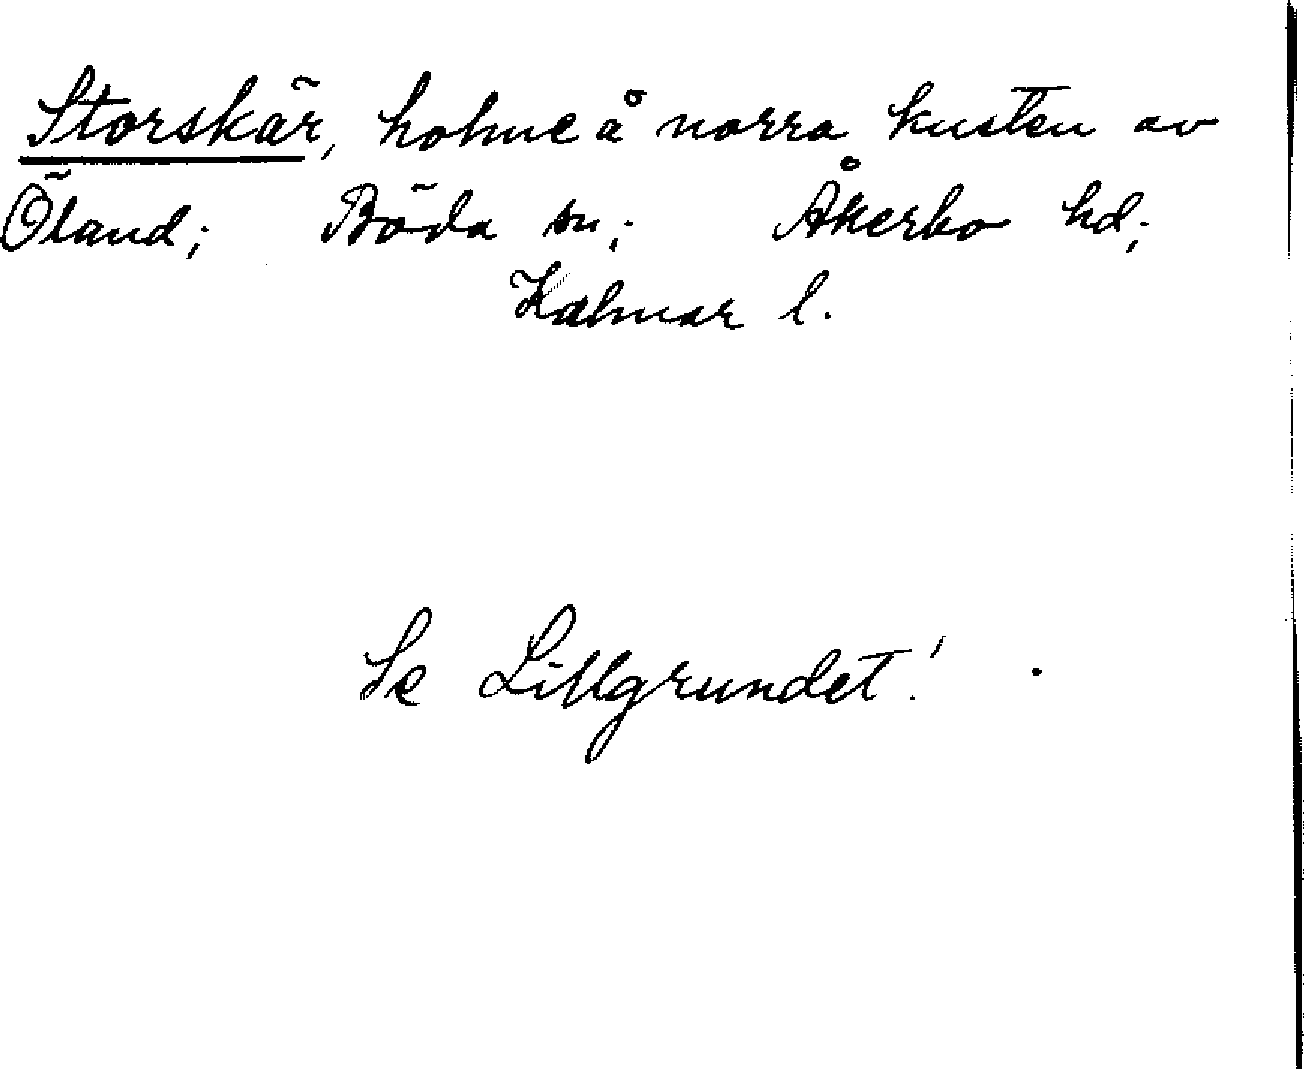 Storskär, holme å norra kusten av
Öland; Böda sn; Åkerbo hd;
Kalmar l.
Se Lillgrundet!